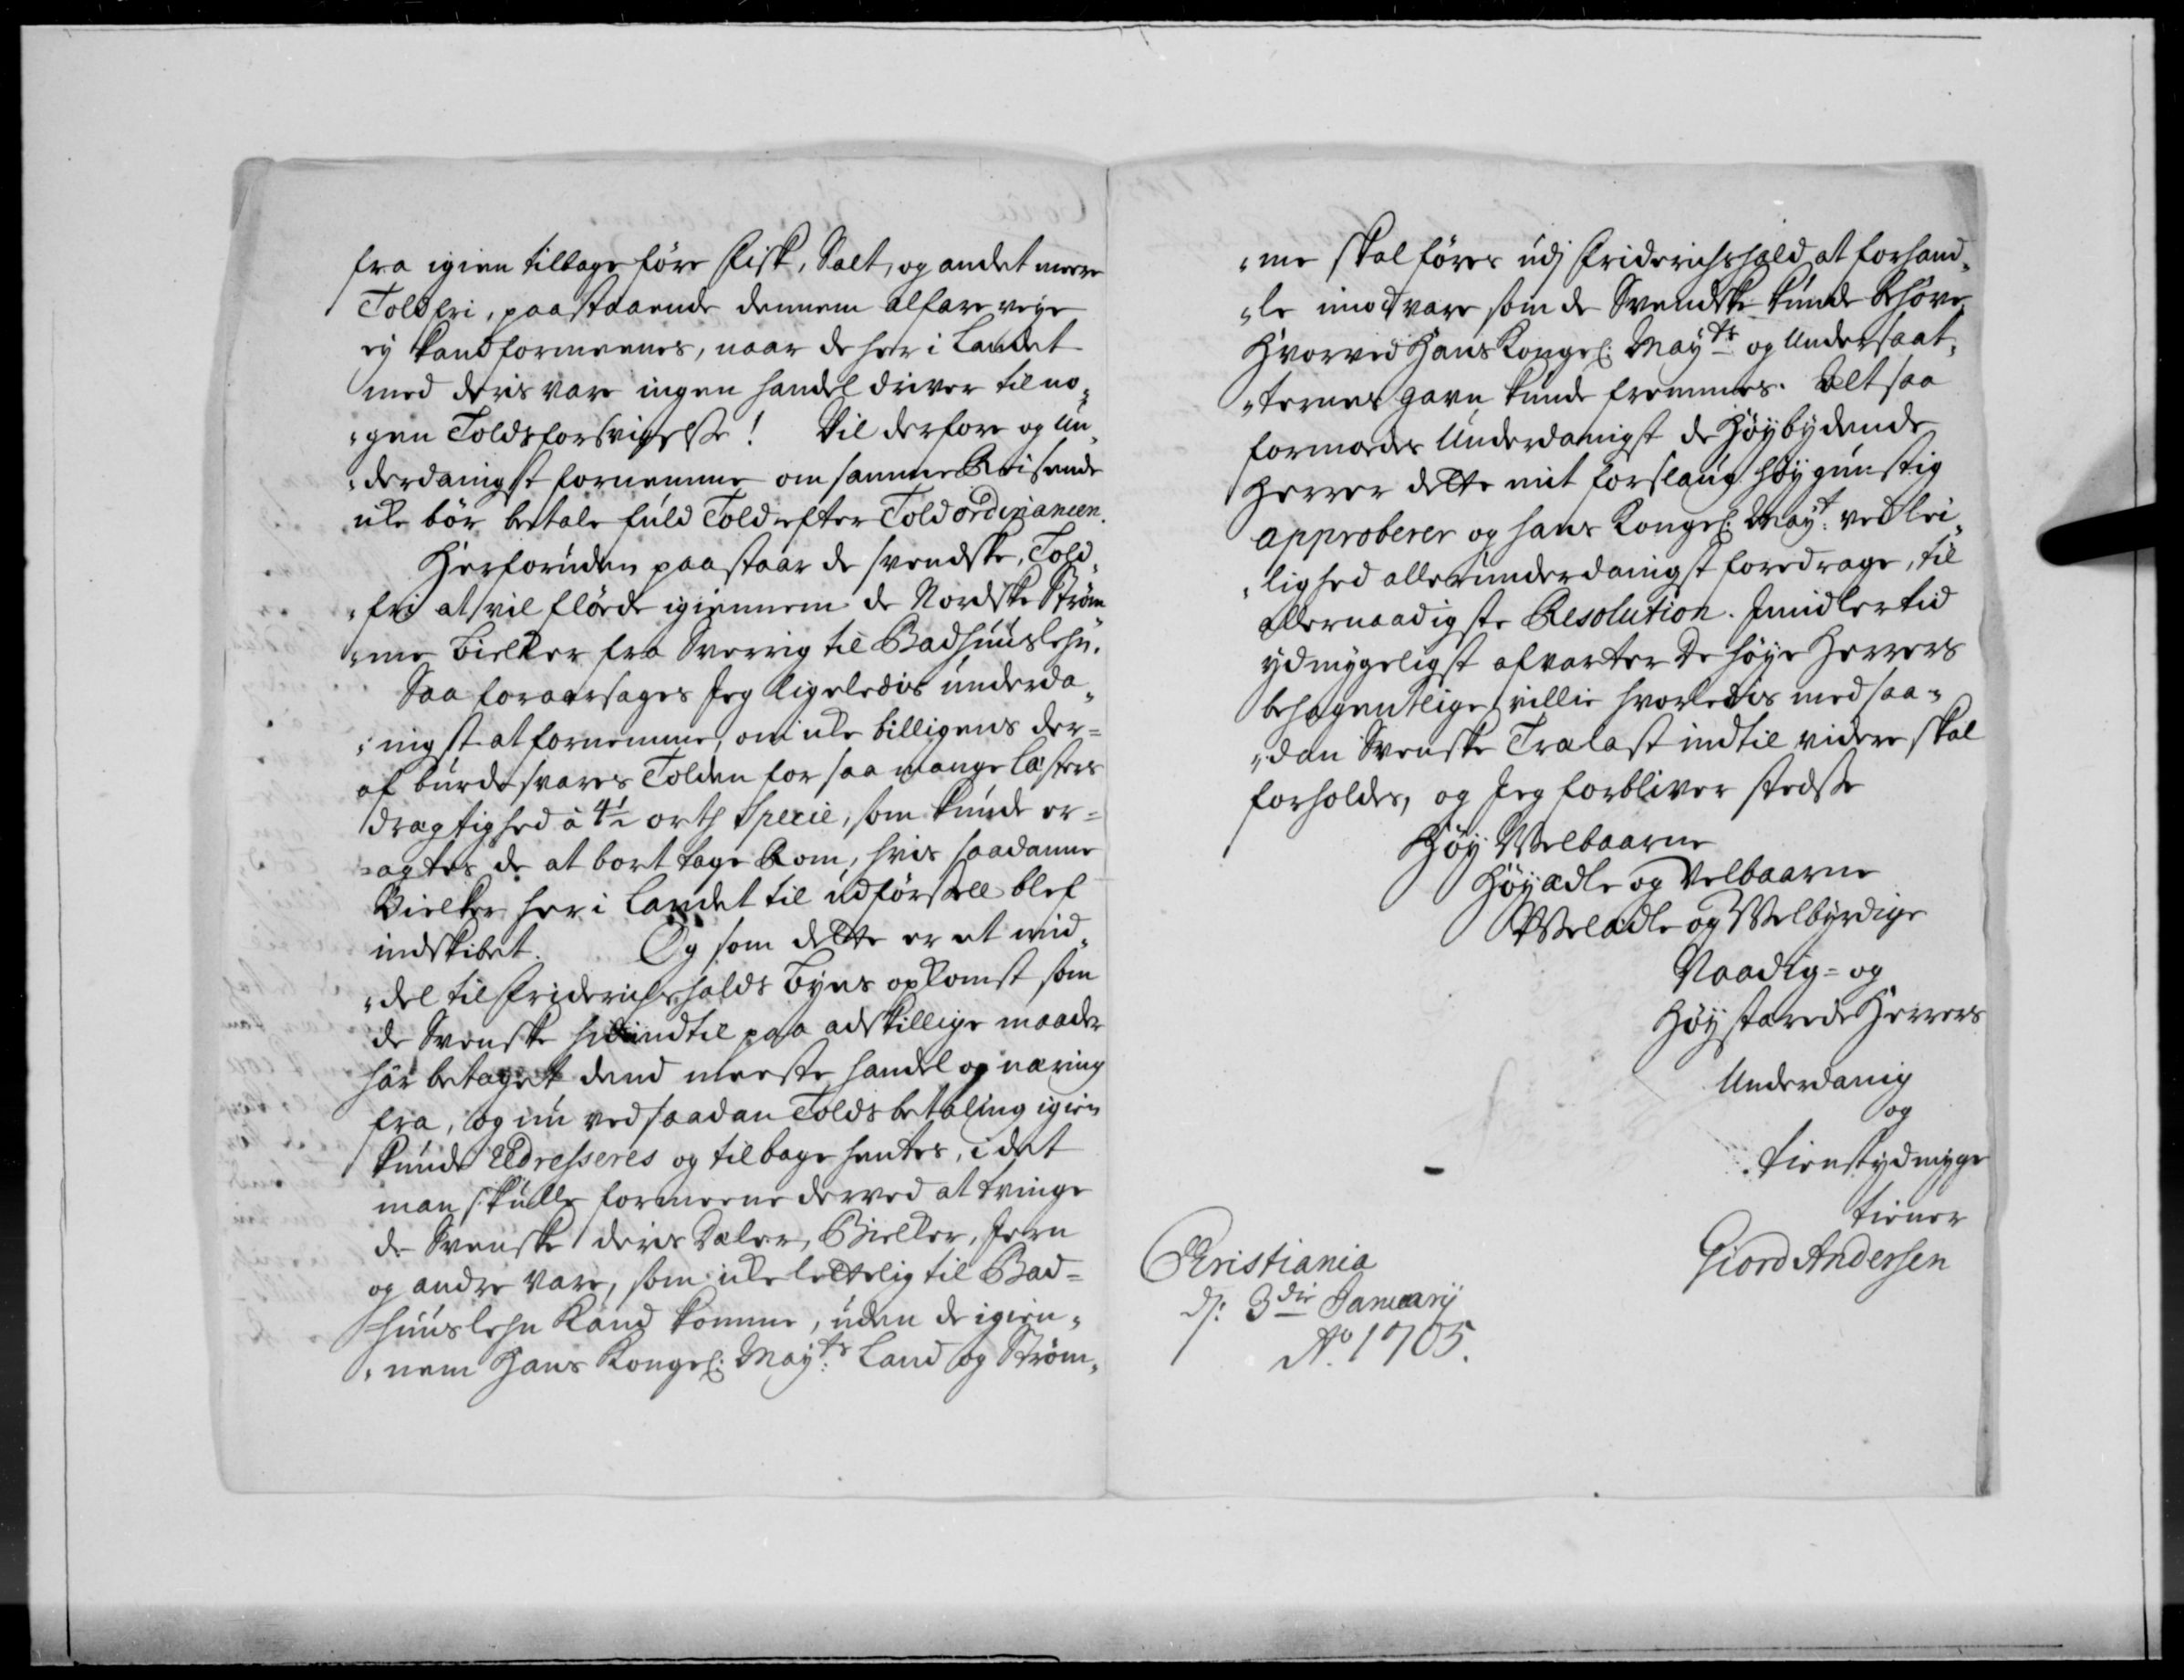 fra igien tilbage före Fisk, Salt, og andet meere
Toldfri, paastaaende dennem alfare veye
ey kand formeenes, naar de her i Landet
med deris vare ingen handel driver til no„
„gen Toldsforsvigelse! Vil derfore og Un„
„derdanigst fornemme om samme Reisende
icke bör betale fuld Told efter Toldordinancen.
Herforuden paastaar de svendske, Told„
„fri at vil flöede igiennem de Nordske Ström„
„me Bielker fra Sverrig til Badhuuslehn.
Saa foraarsages Jeg ligeledis underda„
„nigst at fornemme, om icke billigens der=
af burde svares Tolden for saa mange Læsters
drægtighed à 4½ orth Specie, som kunde er=
=agtes de at bort tage Rom, hvis saadanne
Bielker her i Landet til udförsell blef
indskibet. Og som dette er et mid„
„del til Friderichshalds Byes opkomst som
de Svenske hidindtil paa adskillige maader
har betaget dend meeste handel og næring
fra, og nu ved saadan Tolds betaling igien
kunde Eldresseres og tilbage hentes, i det
man skulle formeene derved at tvinge
de Svenske deris Dæler, Bielker, Jern
og andre Vare, som icke lettelig til Bad=
=huuslehn Kand komme, uden de igien„
„nem Hans Kongel: Mayts: Land og Ström„
„me skal föres udj Friderichshald at forhand„
„le imod vare som de Svendske kunde behöve,
Hvorved Hans Kongel: Mayts og Undersaat„
„ternes gavn kunde fremmes. Alt saa
formodes Underdanigst de Höybydende
Herrer dette mit forslaug höygunstig
approberer og hans Kongel: Mayt: ved lei„
„lighed allerunderdanigst foredrage, til
allernaadigste Resolution. Jmidlertid
ydmygeligst afvarter De höye Herrers
behagentlige villie hvorledis med saa„
„dan Svenske Tralast indtil videre skal
forholdes, og Jeg forbliver stedse
Höy Welbaarne
Höyædle og Velbaarne
Welædle og Welbyrdige
Naadig= og
Höystærede Herrers
Underdanig
og
tienstydmyge
tiener
Giord Andersen
Christiania
d: 3die January
Ao 1705.